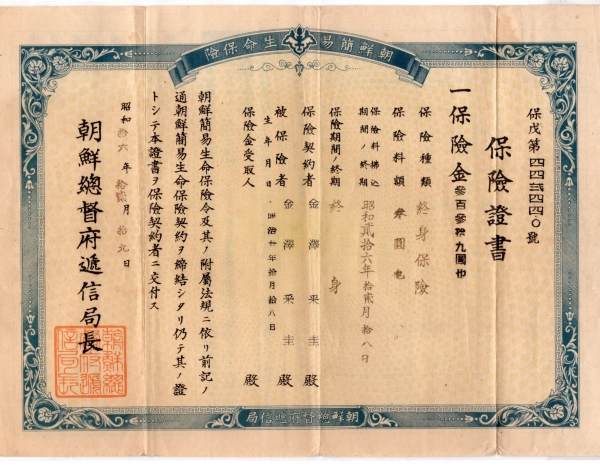 朝鮮簡易生命保險
保戊第四四三四四〇號
保險證書
一保險金參百參拾九圓也
保險種類 終身保險
保險料額 參圓也
保險料拂込期間ノ終期 昭和貳拾六年拾貳月拾八日
保險期間ノ終期 終身
保險契約者 金澤采圭 殿
被保險者 金澤采圭 殿
生年月日 明治 年拾月拾八日
保險金受取人 殿
朝鮮簡易生命保險令及其ノ附屬法規ニ依リ前記ノ
通朝鮮簡易生命保險契約ヲ締結シタリ仍テ其ノ證
トシテ本證書ヲ保險契約者ニ交付ス
昭和拾六年拾貳月拾九日
朝鮮總督府遞信局長
朝鮮總督府遞信局